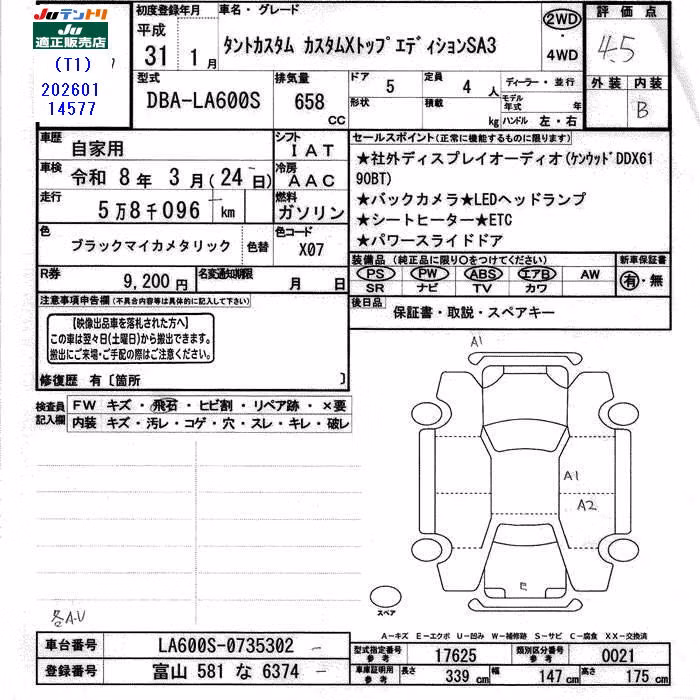 Juテントリ
Ju
適正販売店
(T1)
202601
14577
初度登録年月
平成
31 1月
車名・グレード
タントカスタム カスタムXトップエディションSA3
2WD
・
4WD
評価点
4.5
外装 内装
B
型式
DBA-LA600S
排気量
658 CC
ドア 5
定員 4 人
形状
積載 kg
ディーラー・並行
モデル年式 年
ハンドル 左・右
車歴
自家用
シフト
IAT
車検
令和 8年 3月(24日)
冷房
AAC
走行
5万8千096 km
燃料
ガソリン
色
ブラックマイカメタリック
色替
色コード
X07
R券
9,200円
名変通知期限
月 日
セールスポイント(正常に機能するものに限ります)
★社外ディスプレイオーディオ(ケンウッドDDX61
90BT)
★バックカメラ★LEDヘッドランプ
★シートヒーター★ETC
★パワースライドドア
装備品(純正品に限り〇をつけてください)
PS PW ABS エアB AW
SR ナビ TV カワ
新車保証書
有・無
後日品
保証書・取説・スペアキー
注意事項申告欄(不具合内容等は具体的に記入して下さい)
【映像出品車を落札された方へ】
この車は翌々日(土曜日)から搬出できます。
搬出にご来場・ご手配の際はご注意ください。
修復歴 有〔箇所 〕
検査員記入欄
FW キズ・飛石・ヒビ割・リペア跡・×要
内装 キズ・汚レ・コゲ・穴・スレ・キレ・破レ
A1
A1
A2
E
スペア
各A.U
A-キズ E-エクボ U-凹み W-補修跡 S-サビ C-腐食 XX-交換済
車台番号
LA600S-0735302
登録番号
富山 581 な 6374
型式指定番号 参考
17625
類別区分番号 参考
0021
車庫証明用 参考
長さ 339 cm
幅 147 cm
高さ 175 cm